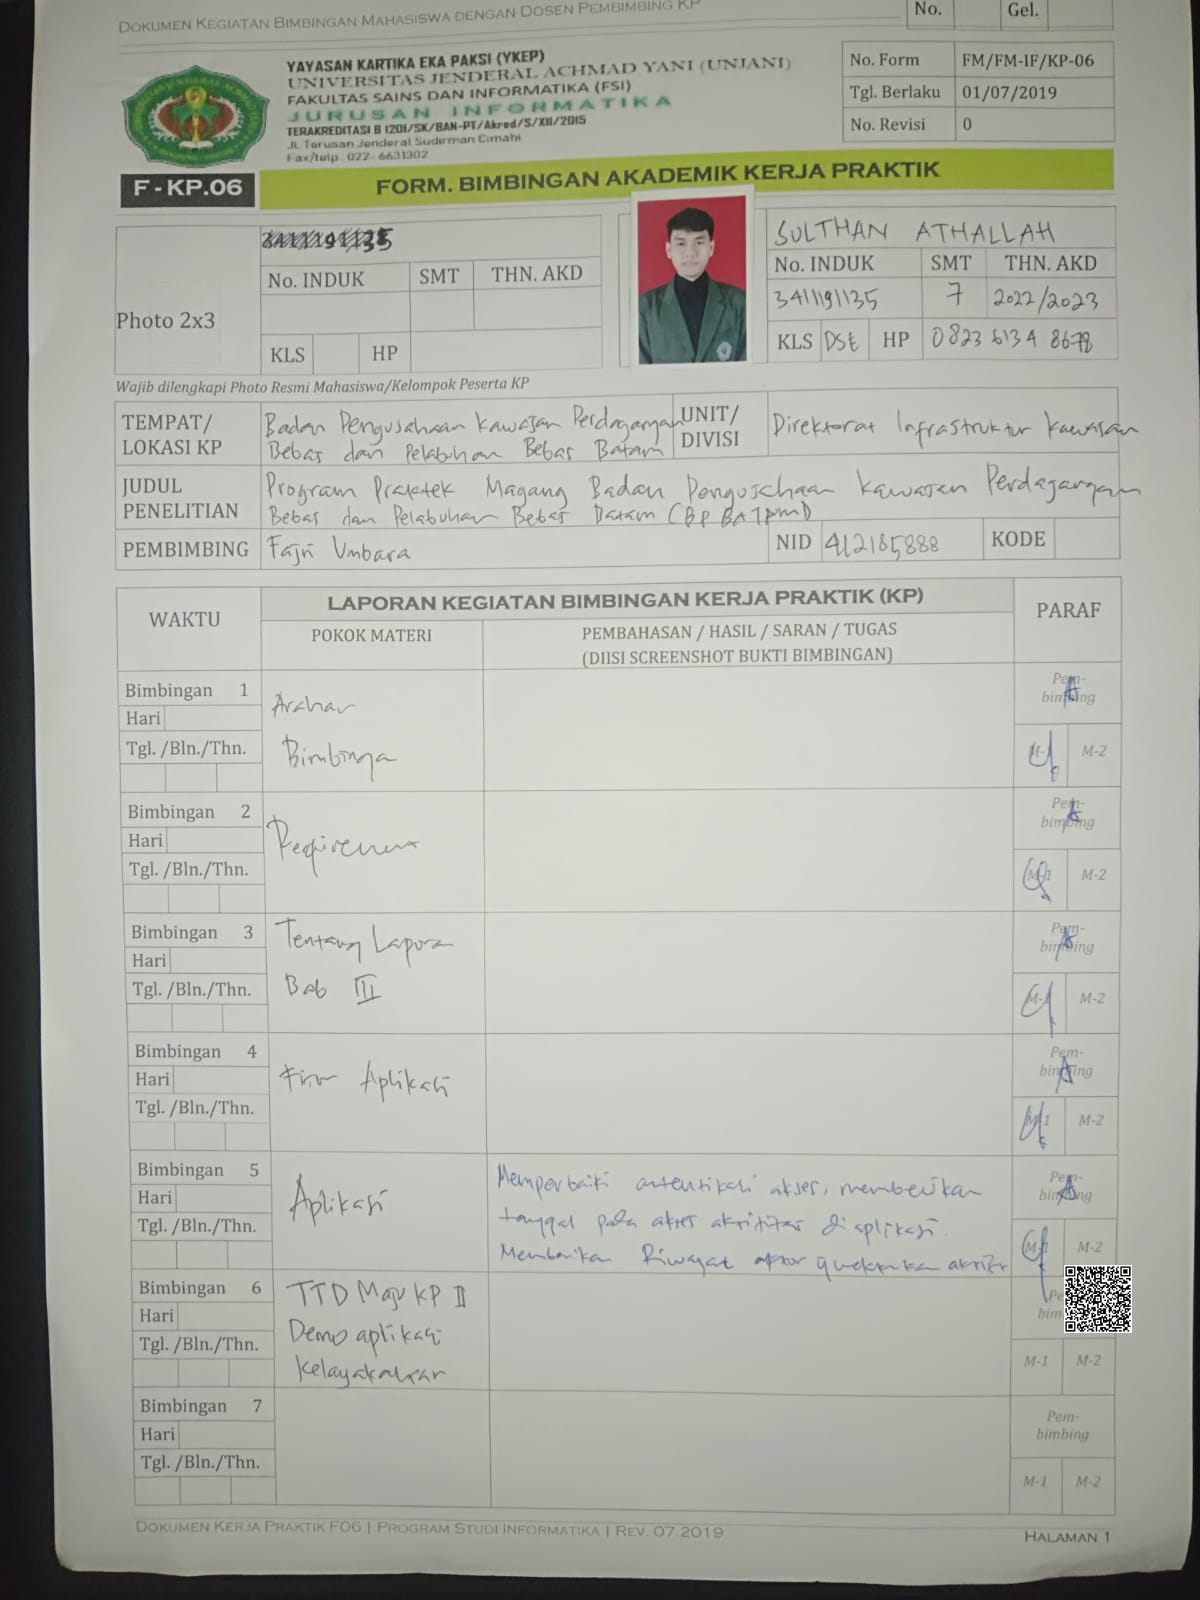 DOKUMEN KEGIATAN BIMBINGAN MAHASISWA DENGAN DOSEN PEMBIMBING KP
No. Gel.
YAYASAN KARTIKA EKA PAKSI (YKEP)
UNIVERSITAS JENDERAL ACHMAD YANI (UNJANI)
FAKULTAS SAINS DAN INFORMATIKA (FSI)
JURUSAN INFORMATIKA
TERAKREDITASI B 1201/SK/BAN-PT/Akred/S/XII/2015
JL. Terusan Jenderal Sudirman Cimahi
Fax/telp : 022- 6631302
No. Form FM/FM-IF/KP-06
Tgl. Berlaku 01/07/2019
No. Revisi 0
F - KP.06 FORM. BIMBINGAN AKADEMIK KERJA PRAKTIK
Photo 2x3
No. INDUK SMT THN. AKD
KLS HP
SULTHAN ATHALLAH
No. INDUK SMT THN. AKD
3411191135 7 2022/2023
KLS DSE HP 0823 6134 8678
Wajib dilengkapi Photo Resmi Mahasiswa/Kelompok Peserta KP
TEMPAT/ LOKASI KP
Badan Pengusahaan Kawasan Perdagangan
Bebas dan Pelabuhan Bebas Batam
UNIT/ DIVISI Direktorat Infrastruktur Kawasan
JUDUL PENELITIAN
Program Praktek Magang Badan Pengusahaan Kawasan Perdagangan
Bebas dan Pelabuhan Bebas Batam (BP BATAM)
PEMBIMBING Fajri Umbara NID 412185888 KODE
WAKTU LAPORAN KEGIATAN BIMBINGAN KERJA PRAKTIK (KP) PARAF
POKOK MATERI PEMBAHASAN / HASIL / SARAN / TUGAS
(DIISI SCREENSHOT BUKTI BIMBINGAN)
Bimbingan 1 Arahan Pem-
Hari bimbing
Tgl. /Bln./Thn. Bimbinga M-1 M-2
Bimbingan 2 Pem-
Hari bimbing
Tgl. /Bln./Thn. M-1 M-2
Bimbingan 3 Tentang Lapora Pem-
Hari bimbing
Tgl. /Bln./Thn. Bab III M-1 M-2
Bimbingan 4 Pem-
Hari Aplikasi bimbing
Tgl. /Bln./Thn. M-1 M-2
Bimbingan 5 Aplikasi Pem-
Hari bimbing
Tgl. /Bln./Thn. M-1 M-2
Memperbaiki autentikasi akses, memberikan
tanggal pada akses aktifitas di aplikasi.
Memberikan Riwayat
Bimbingan 6 TTD Maju KP II Pe
Hari Demo aplikasi bim
Tgl. /Bln./Thn. M-1 M-2
Bimbingan 7 Pem-
Hari bimbing
Tgl. /Bln./Thn. M-1 M-2
DOKUMEN KERJA PRAKTIK F06 | PROGRAM STUDI INFORMATIKA | REV. 07.2019
HALAMAN 1